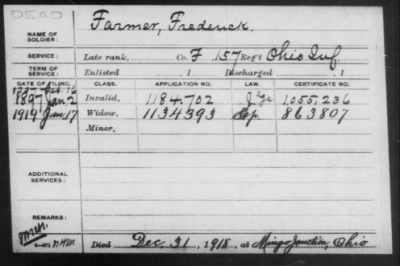 DEAD
NAME OF SOLDIER: Farmer, Frederick.
SERVICE: Late rank, Co. F, 157 Reg't Ohio Inf.
TERM OF SERVICE: Enlisted , 1 Discharged , 1
DATE OF FILING. CLASS. APPLICATION NO. LAW. CERTIFICATE NO.
1897 Jan 2 Invalid, 1184,702 1,055,236
1919 Jan 17 Widow, 1134393 Sep. 863807
Minor,
ADDITIONAL SERVICES:
REMARKS:
Died Dec. 31, 1918, at Mingo Junction, Ohio